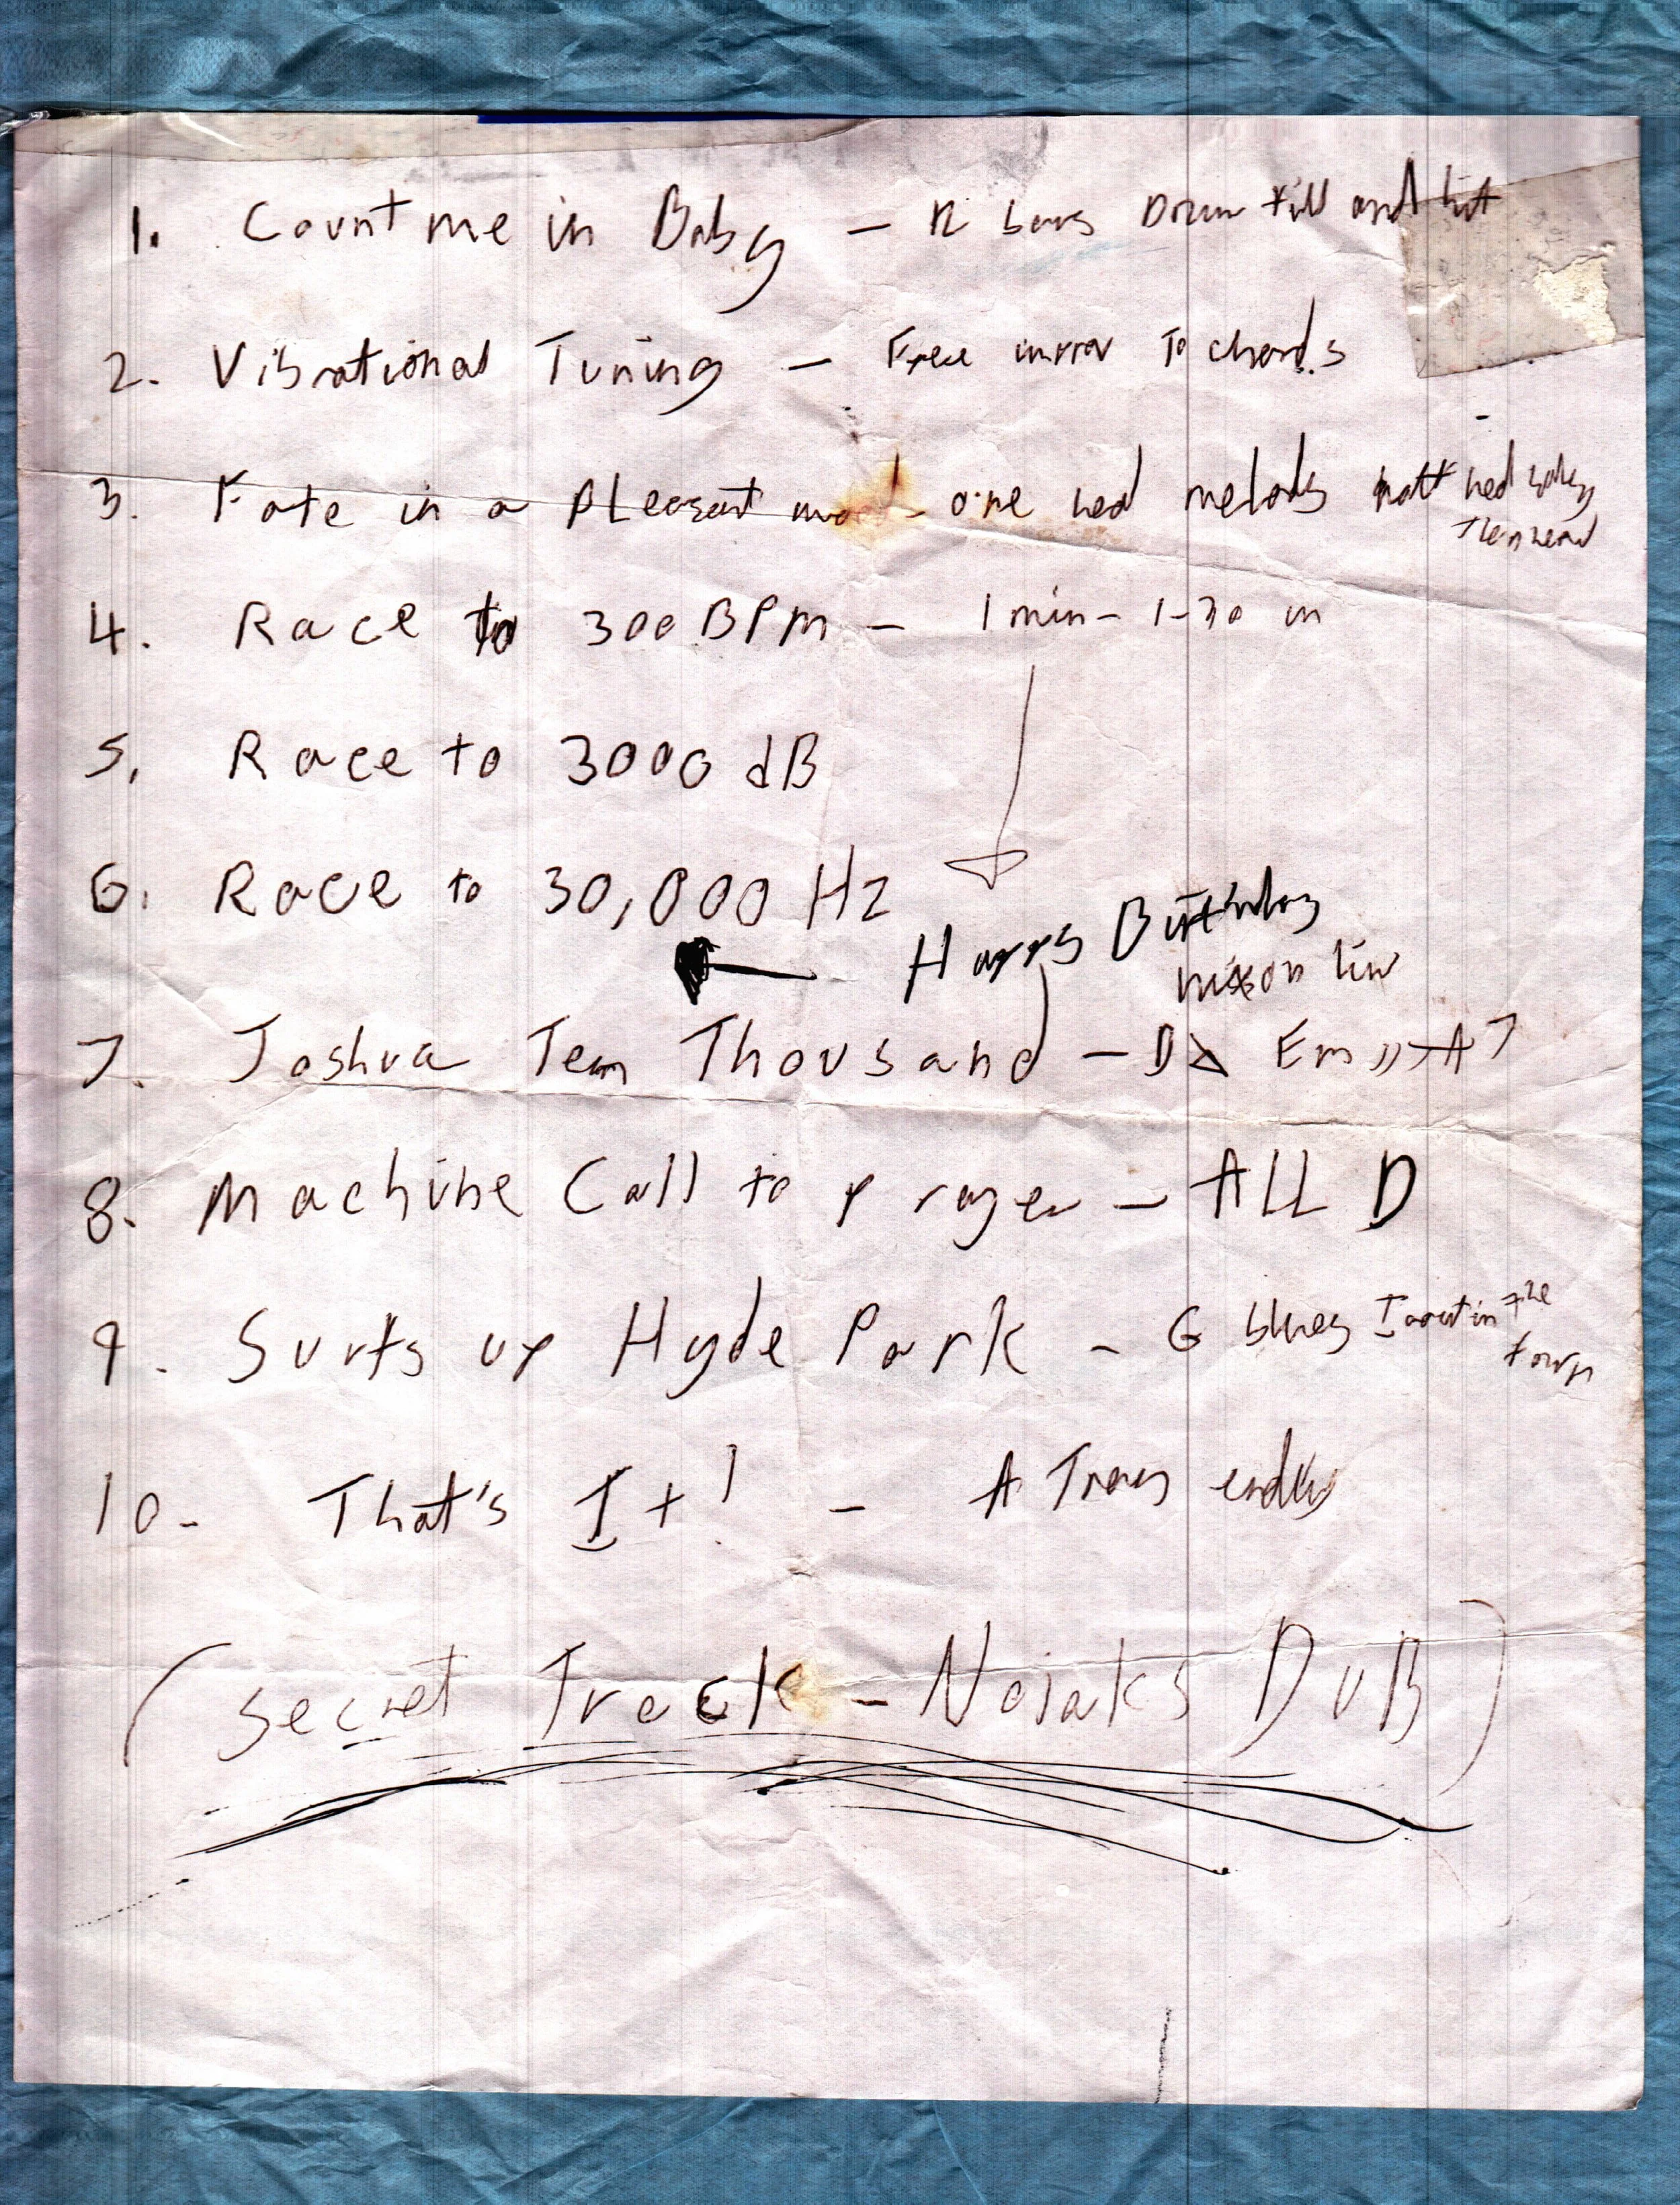 1. Count me in Baby - 12 bars Drum fill and hit
2. Vibrational Tuning - Free inrror To chords
3. Fate in a pLeasant mood - one hed melody matt hed
Then head
4. Race to 300 BPM - 1 min - 1-30 in
5. Race to 3000 dB
6. Race to 30,000 Hz
Happy Birthday
nixon
7. Joshua Ten Thousand - D Em A7
8. Machine Call to prayer - ALL D
9. Surfs up Hyde Park - G blues I out in the
town
10. That's It! - A
(Secret Track - Noiaks DUB)